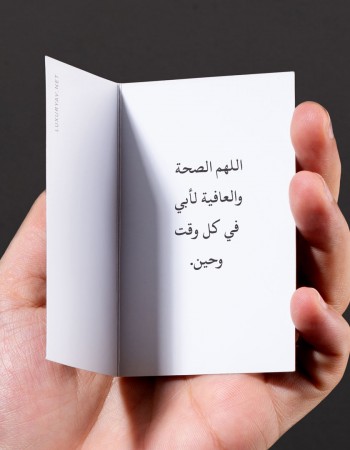 LUXURYAY.NET
اللهم الصحة
والعافية لأبي
في كل وقت
وحين.